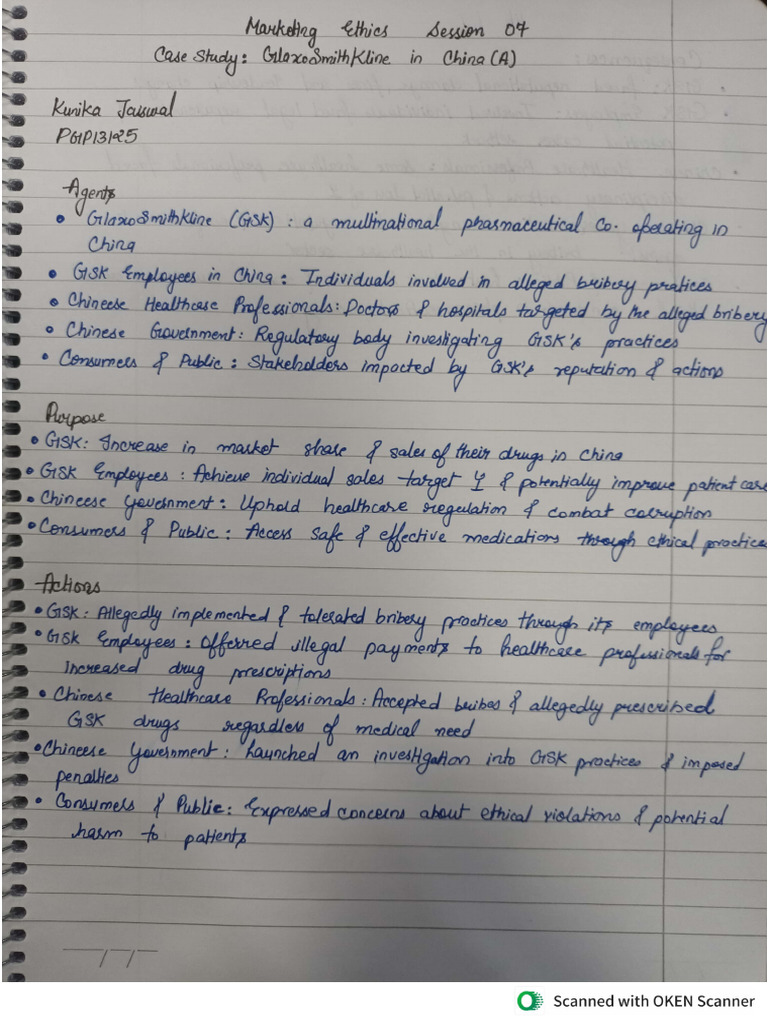 Marketing Ethics Session 07
Case Study: GlaxoSmithKline in China (A)
Kunika Jaiswal
PGP13125
Agents
• GlaxoSmithKline (GSK) : a multinational pharmaceutical Co. operating in
China
• GSK Employees in China : Individuals involved in alleged bribery pratices
• Chineese Healthcare Professionals: Doctors & hospitals targeted by the alleged bribery
• Chinese Government: Regulatory body investigating GSK's practices
• Consumers & Public : Stakeholders impacted by GSK's reputation & actions
Purpose
• GSK: Increase in market share & sales of their drugs in China
• GSK Employees : Achieve individual sales target & potentially improve patient care
• Chineese Government : Uphold healthcare regulation & combat corruption
• Consumers & Public : Access safe & effective medications through ethical practice
Actions
• GSK: Allegedly implemented & tolerated bribery practices through its employees
• GSK Employees : Offerred illegal payments to healthcare professionals for
increased drug prescriptions
• Chinese Healthcare Professionals : Accepted bribes & allegedly prescribed
GSK drugs regardless of medical need
• Chineese Government : Launched an investigation into GSK practices & imposed
penalties
• Consumers & Public : Expressed concerns about ethical violations & potential
harm to patients
Scanned with OKEN Scanner